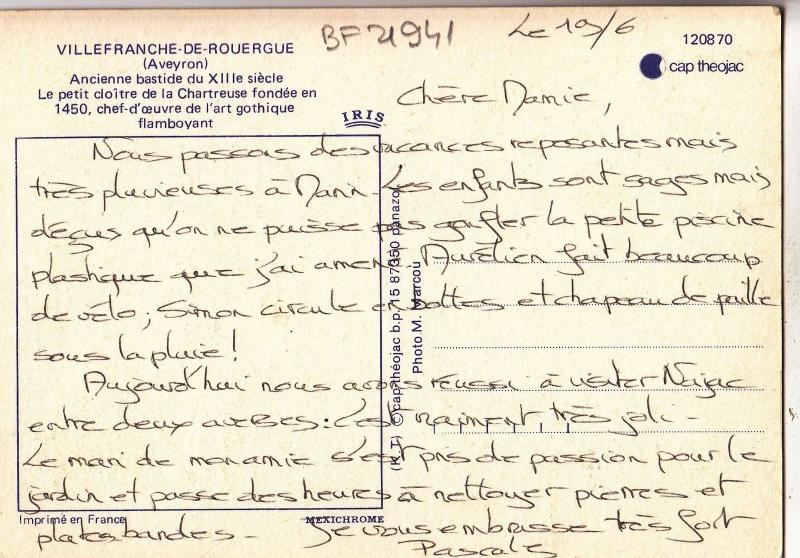 VILLEFRANCHE-DE-ROUERGUE
(Aveyron)
Ancienne bastide du XIIIe siècle
Le petit cloître de la Chartreuse fondée en
1450, chef-d'œuvre de l'art gothique
flamboyant
IRIS
BF 21941
Le 19/6
120870
cap theojac
Chère Mamie,
Nous passons des vacances reposantes mais
très pluvieuses à . Les enfants sont sages mais
déçus qu'on ne puisse pas gonfler la petite piscine
plastique que j'ai amené. Aurélien fait beaucoup
de vélo ; Simon circule en bottes et chapeau de paille
sous la pluie !
Aujourd'hui nous avons réussi à visiter Najac
entre deux averses : c'est vraiment très joli -
Le mari de mon amie s'est pris de passion pour le
jardin et passe des heures à nettoyer pierres et
plates bandes - Je vous embrasse très fort
Pascale
© cap théojac b.p. 15 87350 panazol
Photo M. Marcou
Imprimé en France
MEXICHROME